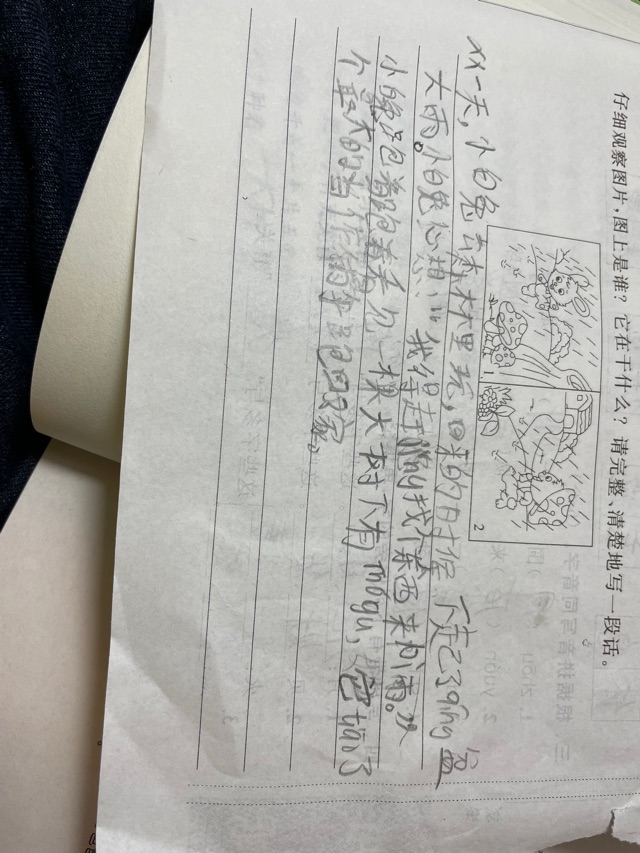 仔细观察图片，图上是谁？它在干什么？请完整、清楚地写一段话。
1 2
一天，小白兔去森林里玩，回来的时候下起了qīng盆
大雨。小白兔心想："我得赶jǐng找个东西来 雨。
小兔跑着跑着看见一棵大树下有mógu，它 了
个最大的当作 回家。